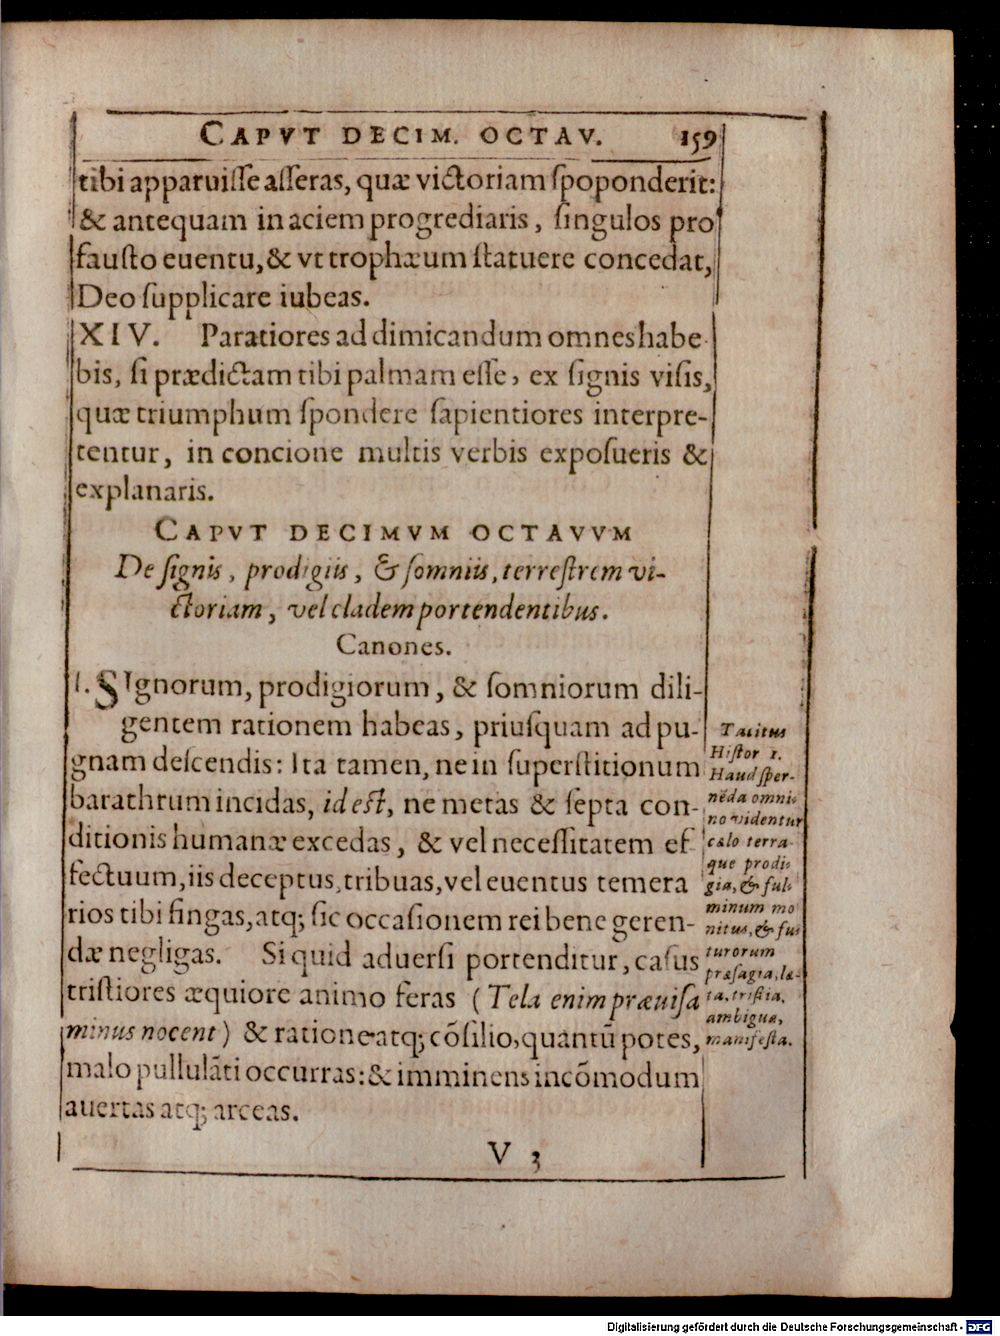 CAPVT DECIM. OCTAV. 159
tibi apparuiſſe aſſeras, quæ victoriam ſpoponderit:
& antequam in aciem progrediaris, ſingulos pro
fauſto euentu, & vt trophæum ſtatuere concedat,
Deo ſupplicare iubeas.
XIV. Paratiores ad dimicandum omnes habe-
bis, ſi prædictam tibi palmam eſſe, ex ſignis viſis,
quæ triumphum ſpondere ſapientiores interpre-
tentur, in concione multis verbis expoſueris &
explanaris.
CAPVT DECIMVM OCTAVVM
De ſignis, prodigiis, & ſomniis, terreſtrem vi-
ctoriam, vel cladem portendentibus.
Canones.
I. SIgnorum, prodigiorum, & ſomniorum dili-
gentem rationem habeas, priuſquam ad pu-
gnam deſcendis: Ita tamen, ne in ſuperſtitionum
barathrum incidas, id eſt, ne metas & ſepta con-
ditionis humanæ excedas, & vel neceſſitatem ef
fectuum, iis deceptus, tribuas, vel euentus temera
rios tibi fingas, atq; ſic occaſionem rei bene geren-
dæ negligas. Si quid aduerſi portenditur, caſus
triſtiores æquiore animo feras (Tela enim præuiſa
minus nocent) & ratione atq; cõſilio, quantũ potes,
malo pullulãti occurras: & imminens incõmodum
auertas atq; arceas.
V 3
Tacitus
Hiſtor 1.
Haud ſper-
nẽda omni-
no videntur
cælo terra-
que prodi-
gia, & ful-
minum mo
nitus, & fu-
turorum
præſagia, læ-
ta, triſtia,
ambigua,
manifeſta.
Digitalisierung gefördert durch die Deutsche Forschungsgemeinschaft - DFG